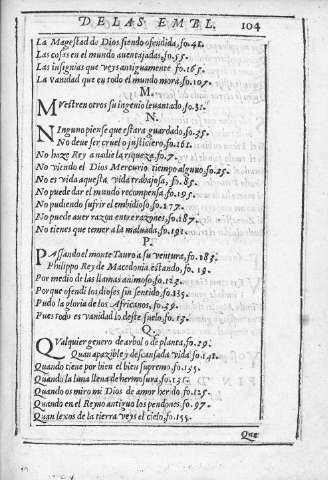 DE LAS EMBL. 104
La Magestad de Dios siendo ofendida, fo.41.
Las cosas en el mundo auentajadas, fo.55.
Las insignias que veys antiguamente fo.165.
La vanidad que en todo el mundo mora, fo.107.
M.
MVestren otros su ingenio leuantado fo.31.
N.
NInguno piense que estara guardado, fo.35.
No deue ser cruel o justiciero, fo.161.
No haze Rey a nadie la riqueza, fo.7.
No viendo el Dios Mercurio tiempo alguno, fo.25.
No es vida aquesta vida trabajosa, fo.85.
No puede dar el mundo recompensa, fo.195.
No pudiendo sufrir el embidioso, fo.277.
No puede auer razon entre razones, fo.187.
No tienes que temer a la maluada, fo.191.
P.
PAssando el monte Tauro a su ventura, fo.183.
Philippo Rey de Macedonia estando, fo. 19.
Por medio de las llamas animoso fo.123.
Porque ofendi los dioses sin sentido, fo.135.
Pudo la gloria de los Africanos, fo.39.
Pues todo es vanidad lo deste suelo, fo.13.
Q.
QValquier genero de arbol o de planta, fo.29.
Quan apazible y descansada vida fo.141.
Quando tiene por bien el bien supremo fo.155.
Quando la luna llena de hermosura, fo.131.
Quando os miro mi Dios de amor herido fo.125.
Quando en el Reyno antiguo los pendones, fo.97.
Quan lexos de la tierra veys el cielo, fo.155.
Que